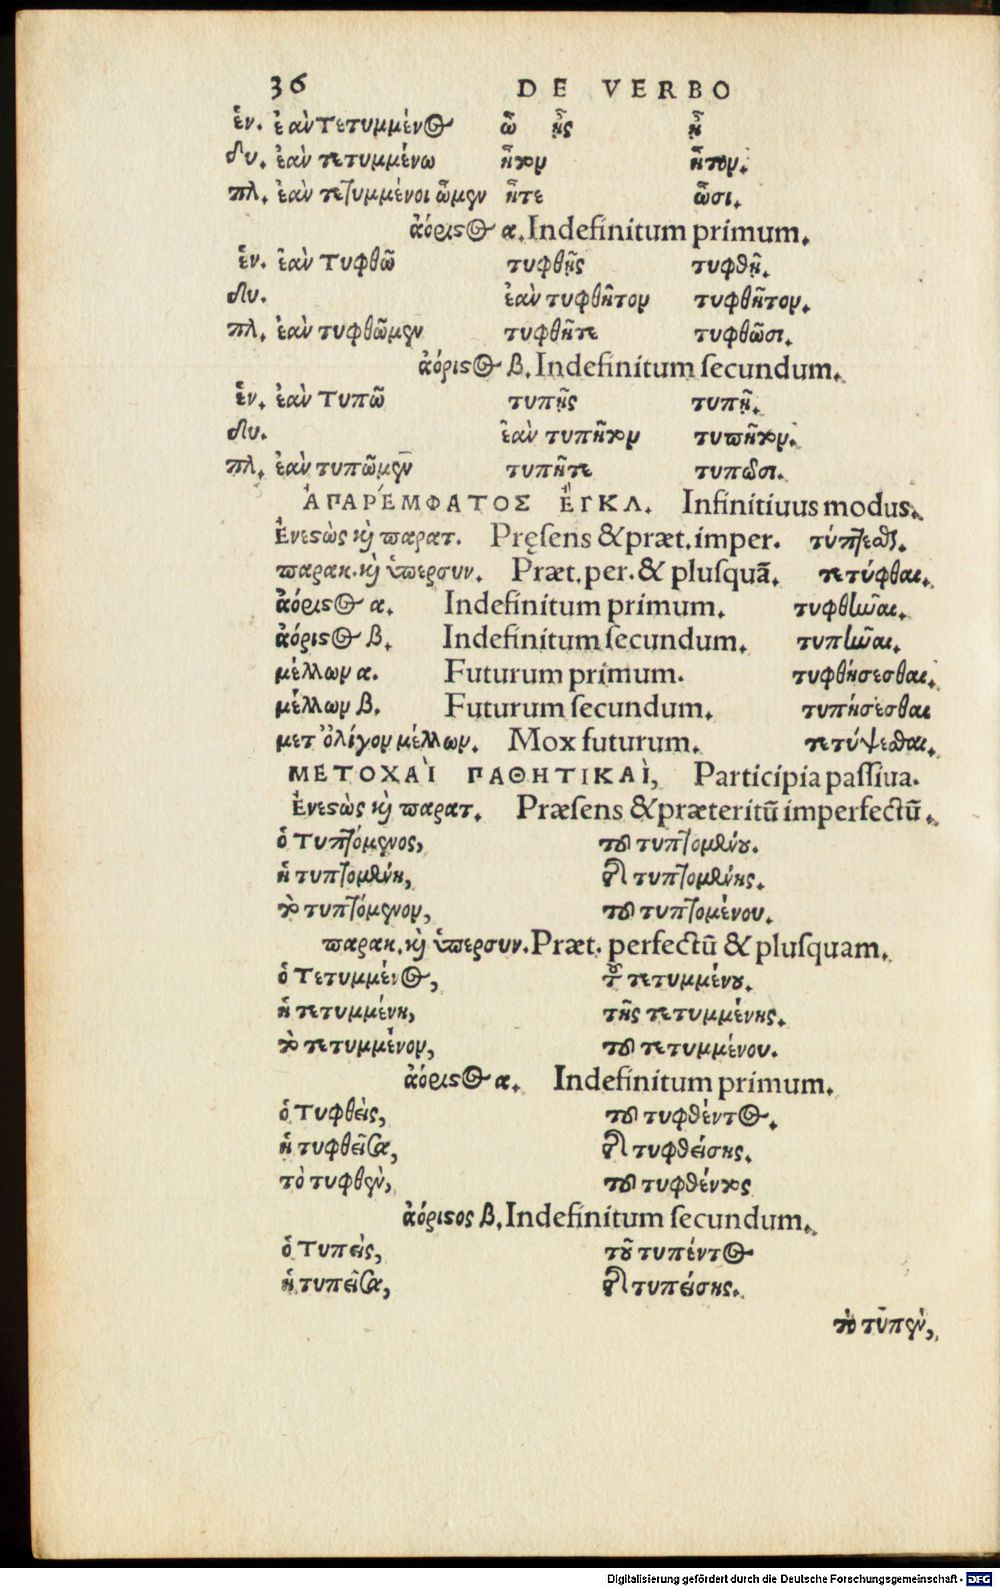 36 DE VERBO
ἑν. ἐὰν τετυμμένος ὦ ᾖς ᾖ
δυ. ἐὰν τετυμμένω ἦτον ἦτον.
πλ. ἐὰν τετυμμένοι ὦμεν ἦτε ὦσι.
ἀόριστος α. Indefinitum primum.
ἑν. ἐὰν τυφθῶ τυφθῇς τυφθῇ.
δυ. ἐὰν τυφθῆτον τυφθῆτον.
πλ. ἐὰν τυφθῶμεν τυφθῆτε τυφθῶσι.
ἀόριστος β. Indefinitum ſecundum.
ἑν. ἐὰν τυπῶ τυπῇς τυπῇ.
δυ. ἐὰν τυπῆτον τυπῆτον.
πλ. ἐὰν τυπῶμεν τυπῆτε τυπῶσι.
ἈΠΑΡΈΜΦΑΤΟΣ ἜΓΚΛ. Infinitiuus modus.
Ἐνεστὼς καὶ παρατ. Pręſens & præt. imper. τύπτεσθαι.
παρακ. καὶ ὑπερσυν. Præt. per. & pluſquã. τετύφθαι.
ἀόριστος α. Indefinitum primum. τυφθῆναι.
ἀόριστος β. Indefinitum ſecundum. τυπῆναι.
μέλλων α. Futurum primum. τυφθήσεσθαι.
μέλλων β. Futurum ſecundum. τυπήσεσθαι
μετ᾽ ὀλίγον μέλλων. Mox futurum. τετύψεσθαι.
ΜΕΤΟΧΑῚ ΠΑΘΗΤΙΚΑῚ, Participia paſſiua.
Ἐνεστὼς καὶ παρατ. Præſens & præteritũ imperfectũ.
ὁ τυπτόμενος, τοῦ τυπτομένου.
ἡ τυπτομένη, τῆς τυπτομένης.
τὸ τυπτόμενον, τοῦ τυπτομένου.
παρακ. καὶ ὑπερσυν. Præt. perfectũ & pluſquam.
ὁ τετυμμένος, τοῦ τετυμμένου.
ἡ τετυμμένη, τῆς τετυμμένης.
τὸ τετυμμένον, τοῦ τετυμμένου.
ἀόριστος α. Indefinitum primum.
ὁ τυφθεὶς, τοῦ τυφθέντος.
ἡ τυφθεῖσα, τῆς τυφθείσης.
τὸ τυφθὲν, τοῦ τυφθέντος
ἀόριστος β. Indefinitum ſecundum.
ὁ τυπεὶς, τοῦ τυπέντος
ἡ τυπεῖσα, τῆς τυπείσης.
τὸ τυπὲν,
Digitalisierung gefördert durch die Deutsche Forschungsgemeinschaft - DFG